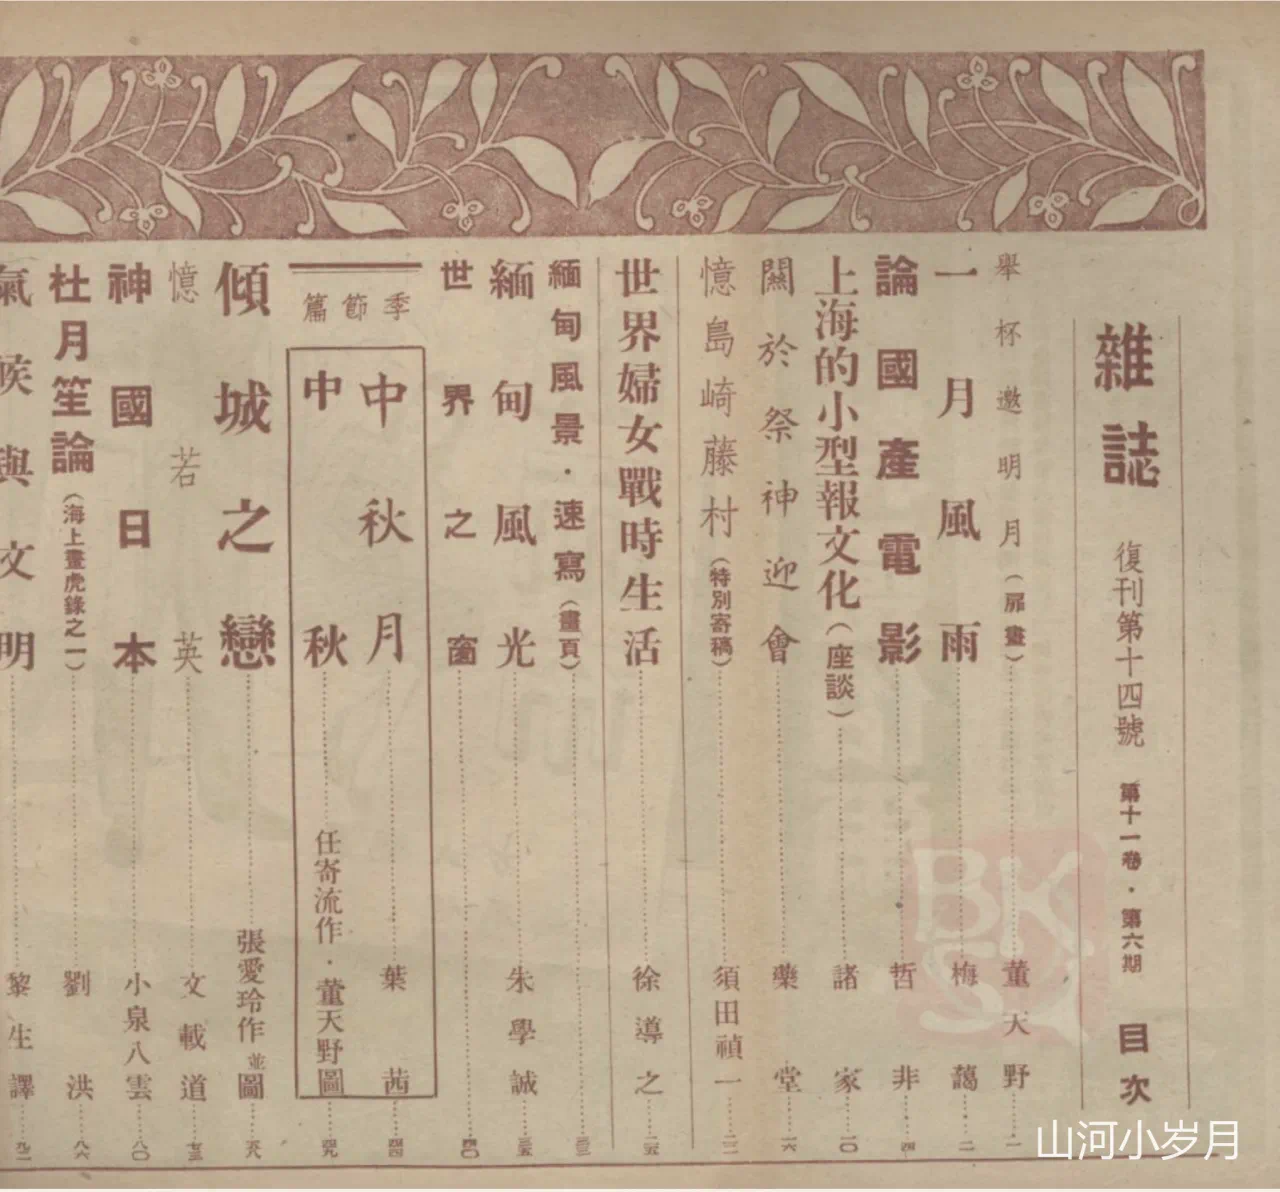 雜誌 復刊第十四號 第十一卷・第六期 目次
舉杯邀明月(扉畫)……董天野……一
一月風雨……梅藹……二
論國產電影……哲非……四
上海的小型報文化(座談)……諸家……一〇
關於祭神迎會……藥堂……一六
憶島崎藤村(特別寄稿)……須田禎一……二二
世界婦女戰時生活……徐導之……二五
緬甸風景・速寫(畫頁)……三三
緬甸風光……朱學誠……三五
世界之窗……四〇
季節篇
中秋月……葉茜……四四
中秋……任寄流作・董天野圖……四九
傾城之戀……張愛玲作並圖……五八
憶若英……文載道……七三
神國日本……小泉八雲……八〇
杜月笙論(海上畫虎錄之一)……劉洪……八六
氣候與文明……黎生譯……九二
BKSY
山河小岁月